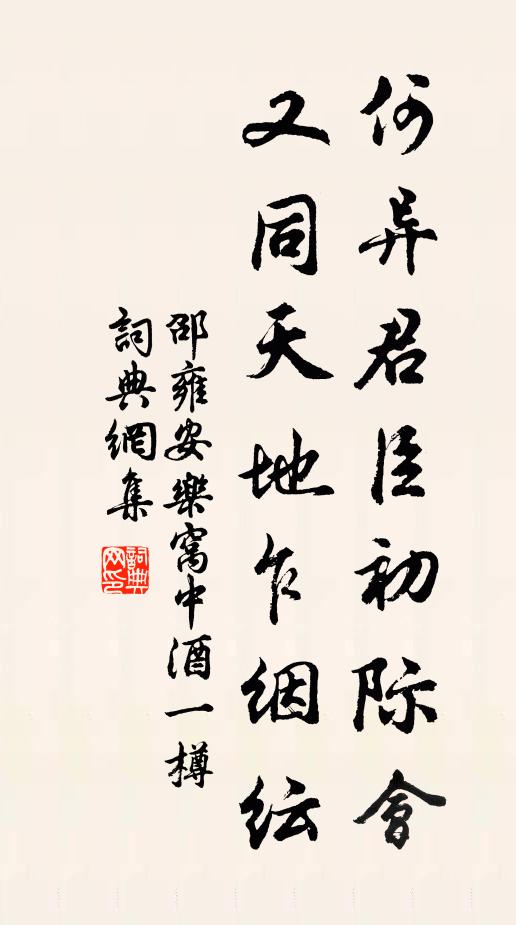 何异君臣初际會
又同天地乍絪纭
邵雍安樂窩中酒一樽
詞典網集
詞典
网印